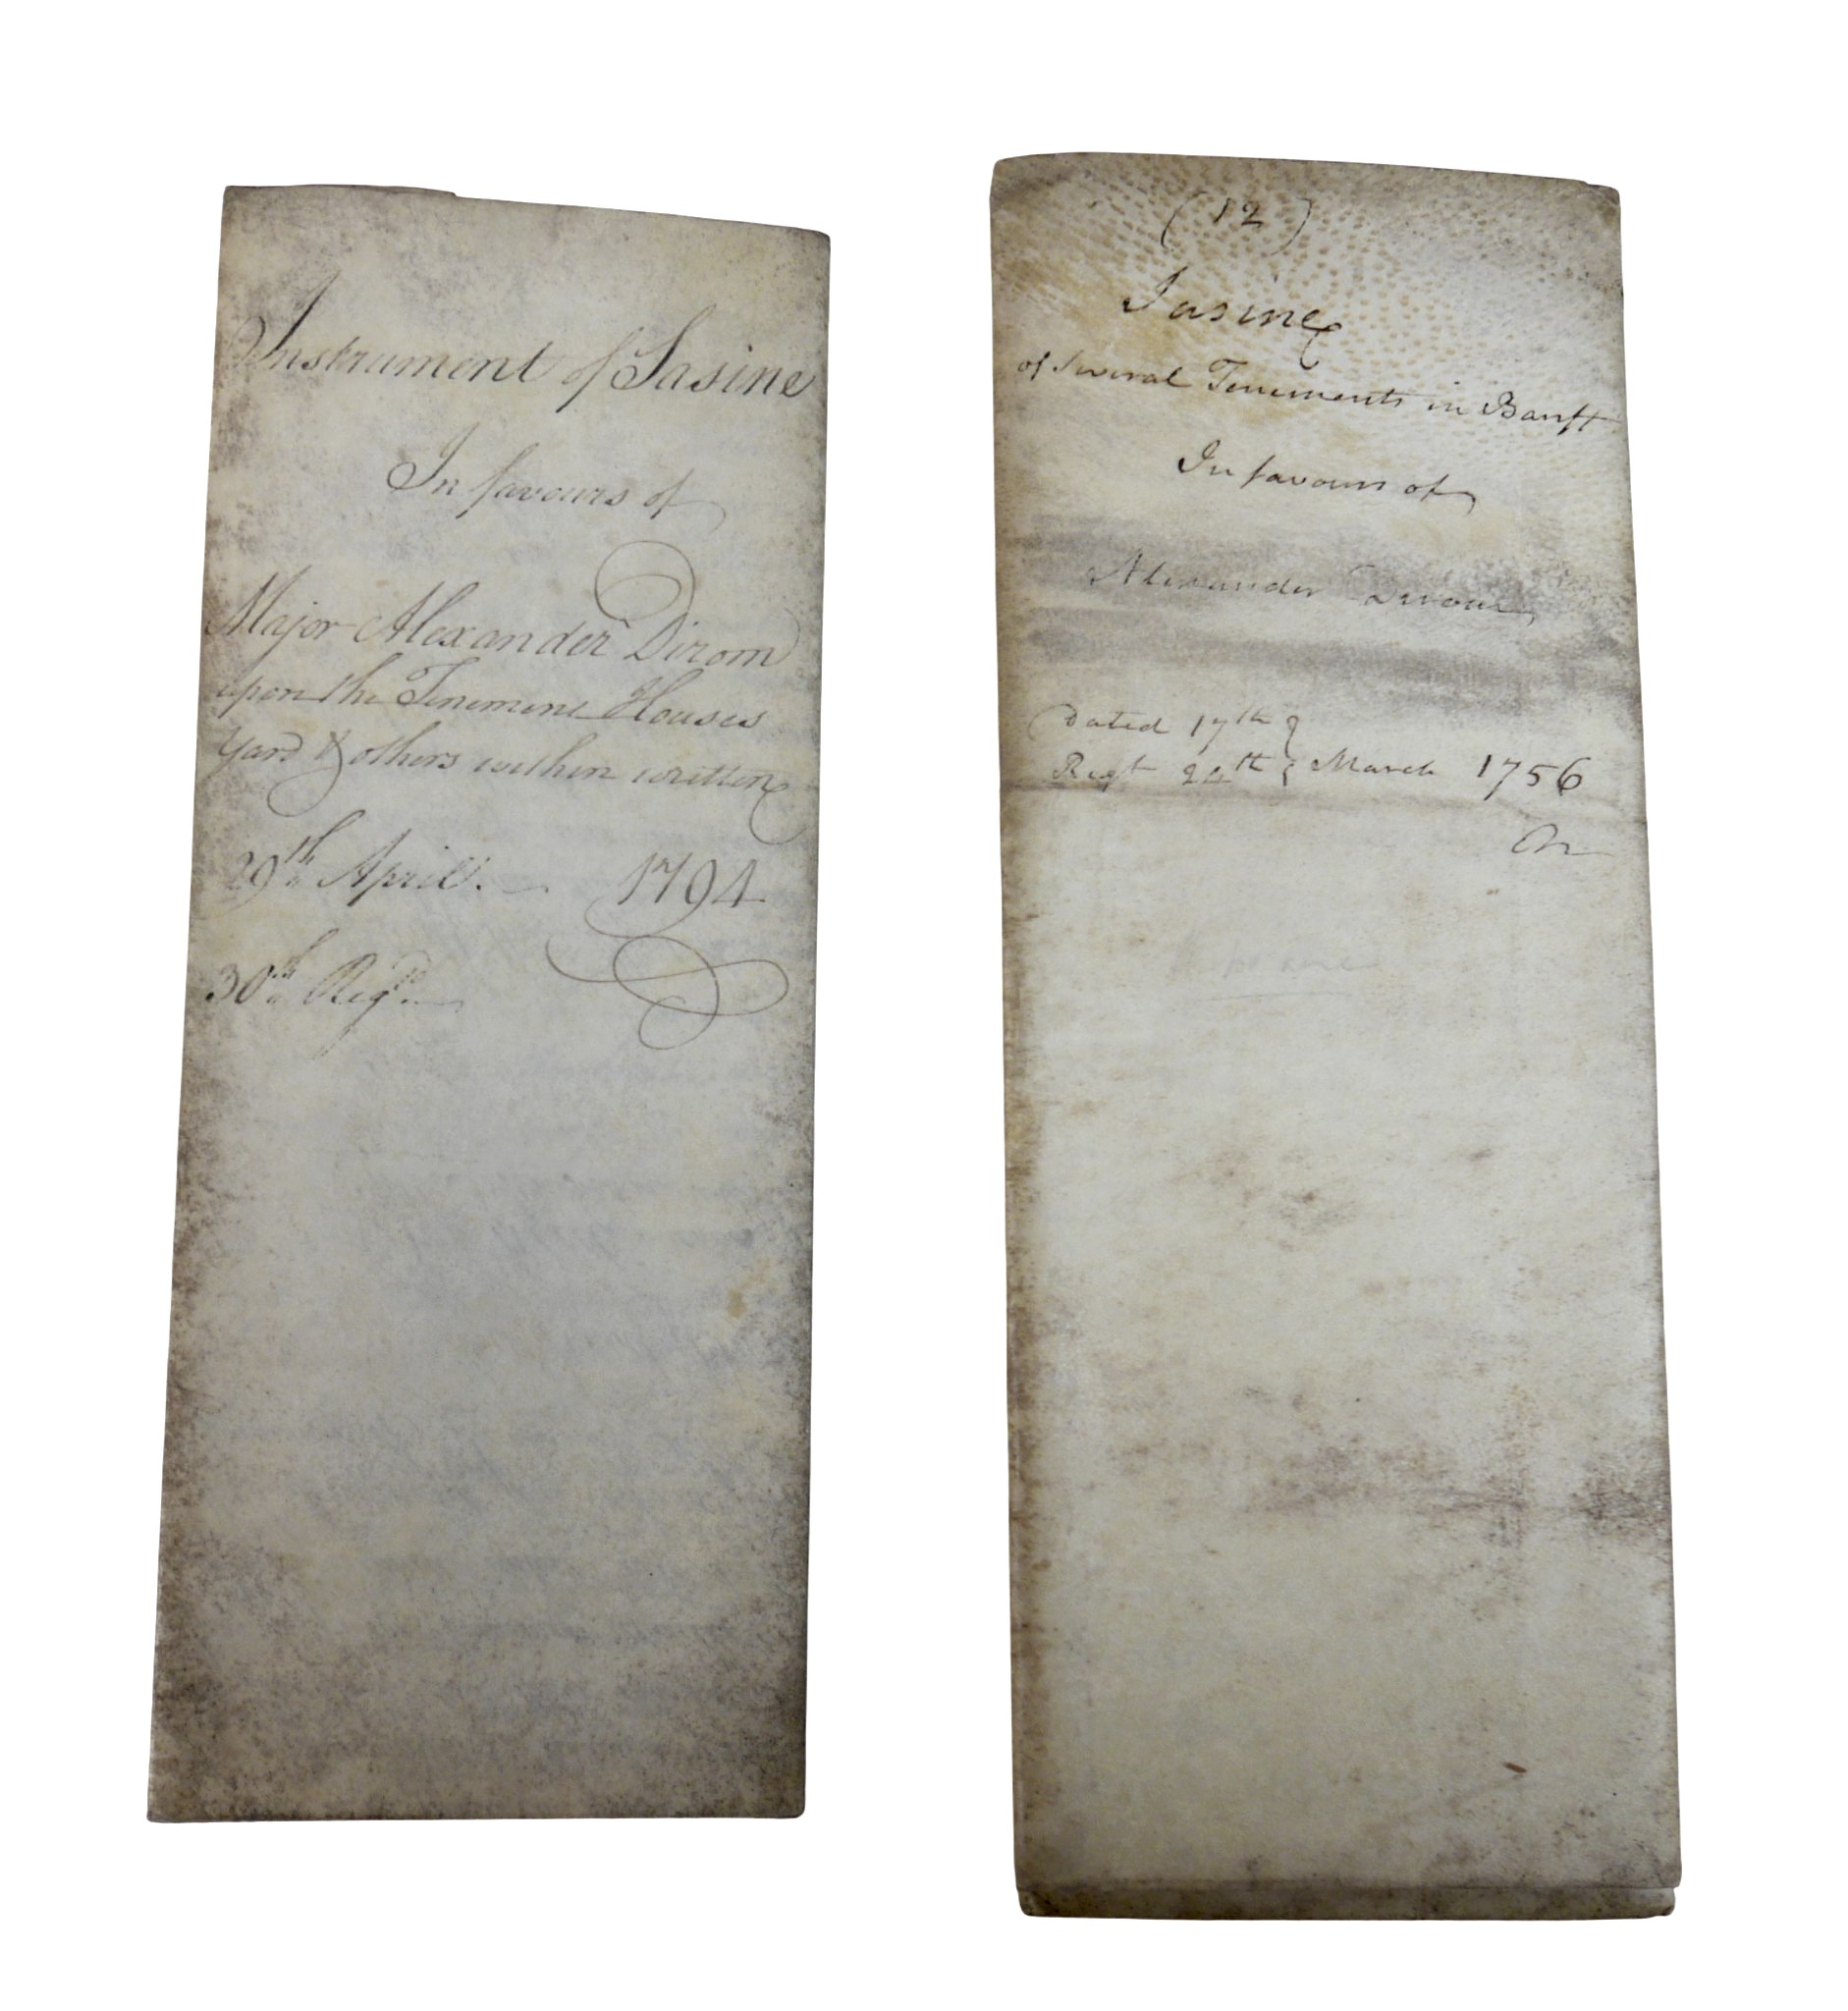 Instrument of Sasine
In favours of
Major Alexander Dirom
upon the Tenement Houses
Yard & others within written
29th April. 1794
30th Regd.
(12)
Sasine
of Several Tenements in Banff
In favours of
Alexander Dirom
Dated 17th
Regt 24th March 1756